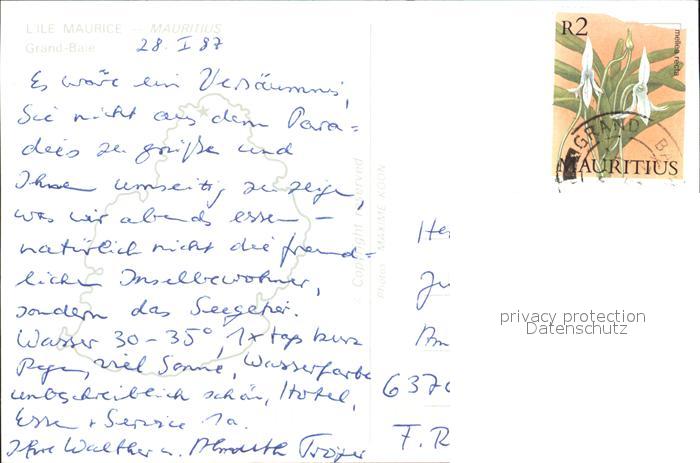 L'ILE MAURICE - MAURITIUS
Grand-Baie
28. I 87
Es wäre ein Versäumnis,
Sie nicht aus dem Para=
dies zu grüßen und
Ihnen umseitig zu zeigen,
was wir abends essen –
natürlich nicht die freund=
lichen Inselbewohner,
sondern das Seegetier.
Wasser 30-35°, 1x tags kurz
Regen, viel Sonne, Wasserfarbe
unbeschreiblich schön, Hotel,
Essen + Service 1a.
Ihre Walther u. Tröger
Copyright reserved
Photos MAXIME KOON
R2
mellea recta
GRAND BA
MAURITIUS
Her
Ju
Am
637
F. R
privacy protection
Datenschutz